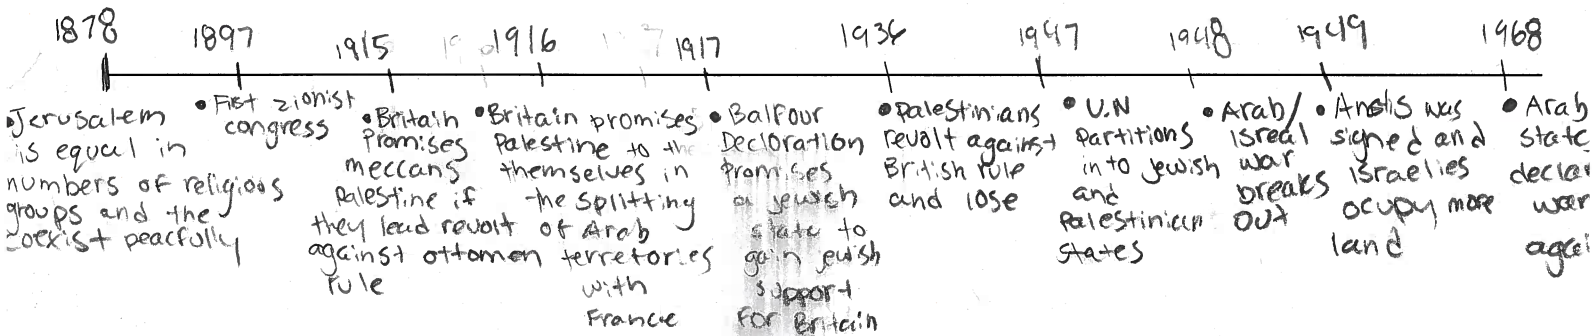 1878
1897
1915
1916
1917
1936
1947
1948
1949
1968
•Jerusalem
is equal in
numbers of religious
groups and the
coexist peacfully
• Fist zionist
congress
•Britain
Promises
meccans
Palestine if
they lead revolt
against ottomen
rule
•Britain promises
Palestine to the
themselves in
the splitting
of Arab
terretories
with
France
• Balfour
Decloration
Promises
a jewish
state to
gain jewish
support
for Britain
•Palestinians
revolt against
British rule
and lose
• U.N
Partitions
into jewish
and
Palestinian
states
• Arab/
isreal
war
breaks
out
• was
signed and
israelies
ocupy more
land
• Arab
state
declar
war
agai